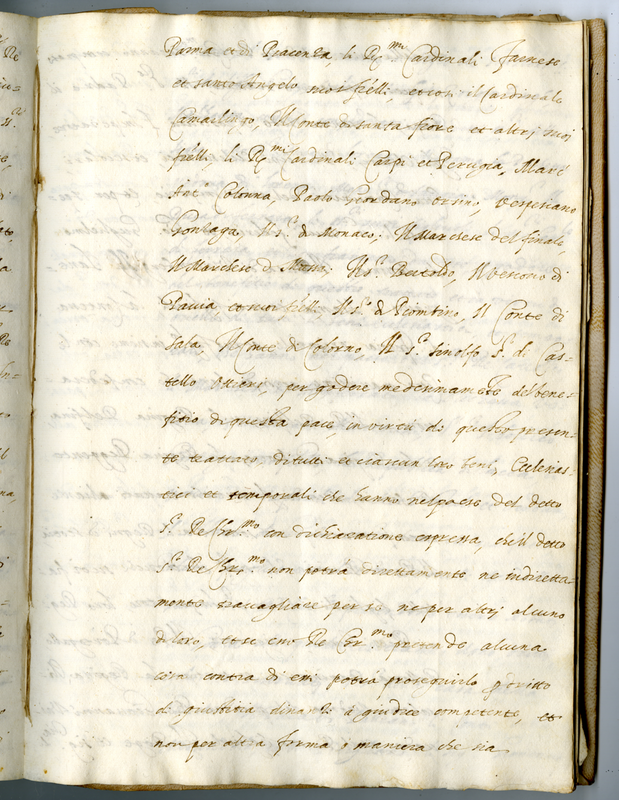 Parma et di Piacenza, li R.mi Cardinali Farnese
et santo Angelo suoi frẽlli, et così il Cardinale
Camarlingo, Il Conte di santa fiore et altri suoi
frẽlli, li R.mi Cardinali Carpi et Perugia, Marc
Ant.o Colonna, Paolo Giordano Orsino, Vespesiano
Gonzaga, Il s.r di Monaco, Il Marchese del finale,
Il Marchese di Massa, Il s.r Bertoldo, Il Vescovo di
Pavia et suoi frẽlli Il s.r di Piombino, Il Conte di
Sala, Il Conte de Colorno Il s.r Sinolfo s.r di Cas=
tello Ottieri, per godere medesimamẽte del bene=
fitio di questa pace, in virtù di questo presen=
te trattato, di tutti et ciascun loro beni, Ecclesias=
tici et temporali che hanno nel paese del detto
s.r Re Chr.mo con dichiaratione expressa, che il detto
s.r Re Chr.mo non potrà direttamente ne indiretta=
mente travagliare per se ne per altri alcuno
di loro, et se esso Re Chr.mo pretende alcuna
cosa contra di essi potrà proseguirlo p dritto
di giustitia dinanzi à giudice competente, et
non per altra forma ò maniera che sia